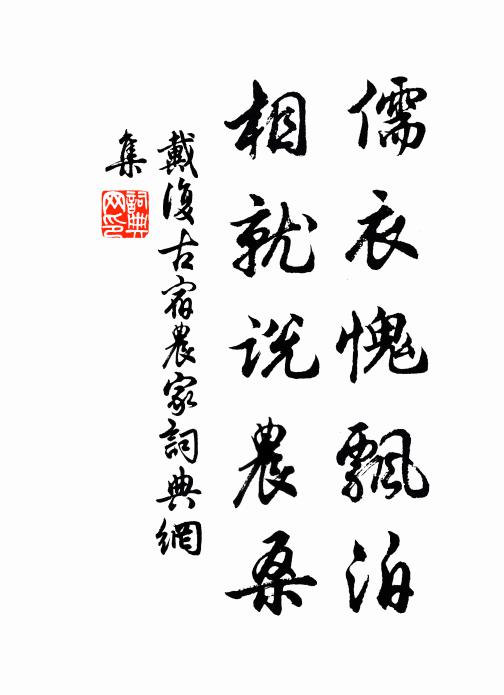 儒衣愧飄泊
相就说農桑
戴復古宿農家詞典網
集
詞典
网印